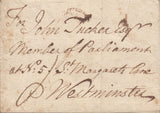 For John Tucker Esqr
Member of Parliament
at No: 5 St. Margarets Lane
Westminster